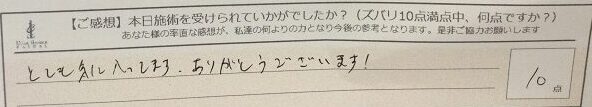 【ご感想】本日施術を受けられていかがでしたか？（ズバリ10点満点中、何点ですか？）
あなた様の率直な感想が、私達の何よりの力となり今後の参考となります。是非ご協力お願いします
とても気に入ってます．ありがとうございます！
10点